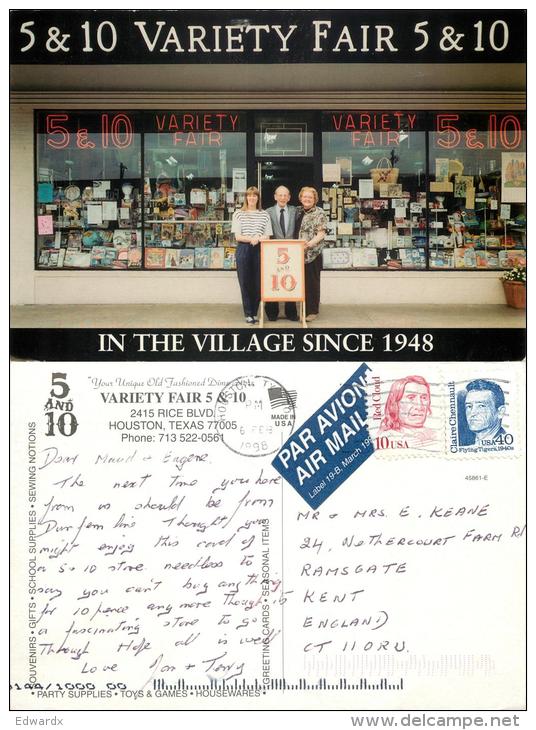 5 & 10 VARIETY FAIR 5 & 10
5 & 10
VARIETY
FAIR
VARIETY
FAIR
5 & 10
5
AND
10
IN THE VILLAGE SINCE 1948
5
AND
10
"Your Unique Old Fashioned Dime
VARIETY FAIR 5 & 10
2415 RICE BLVD.
HOUSTON, TEXAS 77005
Phone: 713 522-0561
HOUSTON, TX
PM
6 FEB
1998
MADE IN
USA
PAR AVION
AIR MAIL
Label 19-B, March 198
Red Cloud
10USA
Claire Chennault
USA40
Flying Tigers, 1940s
45861-E
Dear Maud + Eugene.
The next time you here
from us should be from
Dunfermline Thought you
might enjoy this card of
a 5 & 10 store needless to
say you can't buy anything
for 10 pence any more Though is
a fascinating store to go
Through Hope all is well
Love + Terry
MR & MRS. E. KEANE
24, NETHERCOURT FARM Rd
RAMSGATE
KENT
ENGLAND
CT 11 ORU.
SOUVENIRS • GIFTS • SCHOOL SUPPLIES • SEWING NOTIONS
GREETING CARDS • SEASONAL ITEMS
PARTY SUPPLIES • TOYS & GAMES • HOUSEWARES
Edwardx
www.delcampe.net